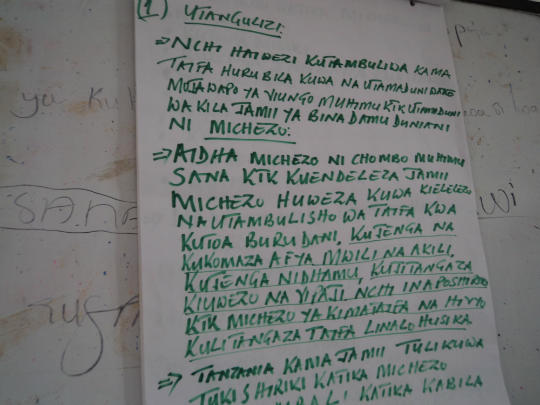 (1) UTANGULIZI:
⇒ NCHI HAIWEZI KUTAMBULIWA KAMA
TAIFA HURU BILA KUWA NA UTAMADUNI WAKE
MOJAWAPO YA VIUNGO MUHIMU KTK UTAMADUNI
WA KILA JAMII YA BINADAMU DUNIANI
NI MICHEZO:
⇒ AIDHA MICHEZO NI CHOMBO MUHIMU
SANA KTK KUENDELEZA JAMII
MICHEZO HUWEZA KUWA KIELELEZO
NA UTAMBULISHO WA TAIFA KWA
KUTOA BURUDANI, KUJENGA NA
KUKOMAZA AFYA MWILI NA AKILI,
KUJENGA NIDHAMU, KUJITANGAZA
KIUWEZO NA VIPAJI NCHI INAPOSHIRIKI
KTK MICHEZO YA KIMATAIFA NA HIVYO
KULITANGAZA TAIFA LINALOHUSIKA
⇒ TANZANIA KAMA JAMII TULIKUWA
TUKISHIRIKI KATIKA MICHEZO
KATIKA KABILA
ya ku
SANA
WI